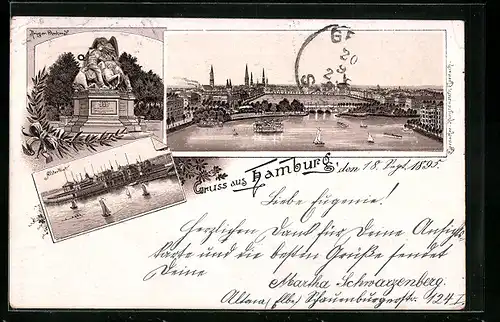 Gruss aus Hamburg, den 18. Sept. 1895.
Liebe Eugenie!
Herzlichen Dank für Deine Ansichts-
karte und die besten Grüße sendet
Deine
Martha Schwarzenberg.
Altona, (Elbe) Schauenburgerstr. 124 I.